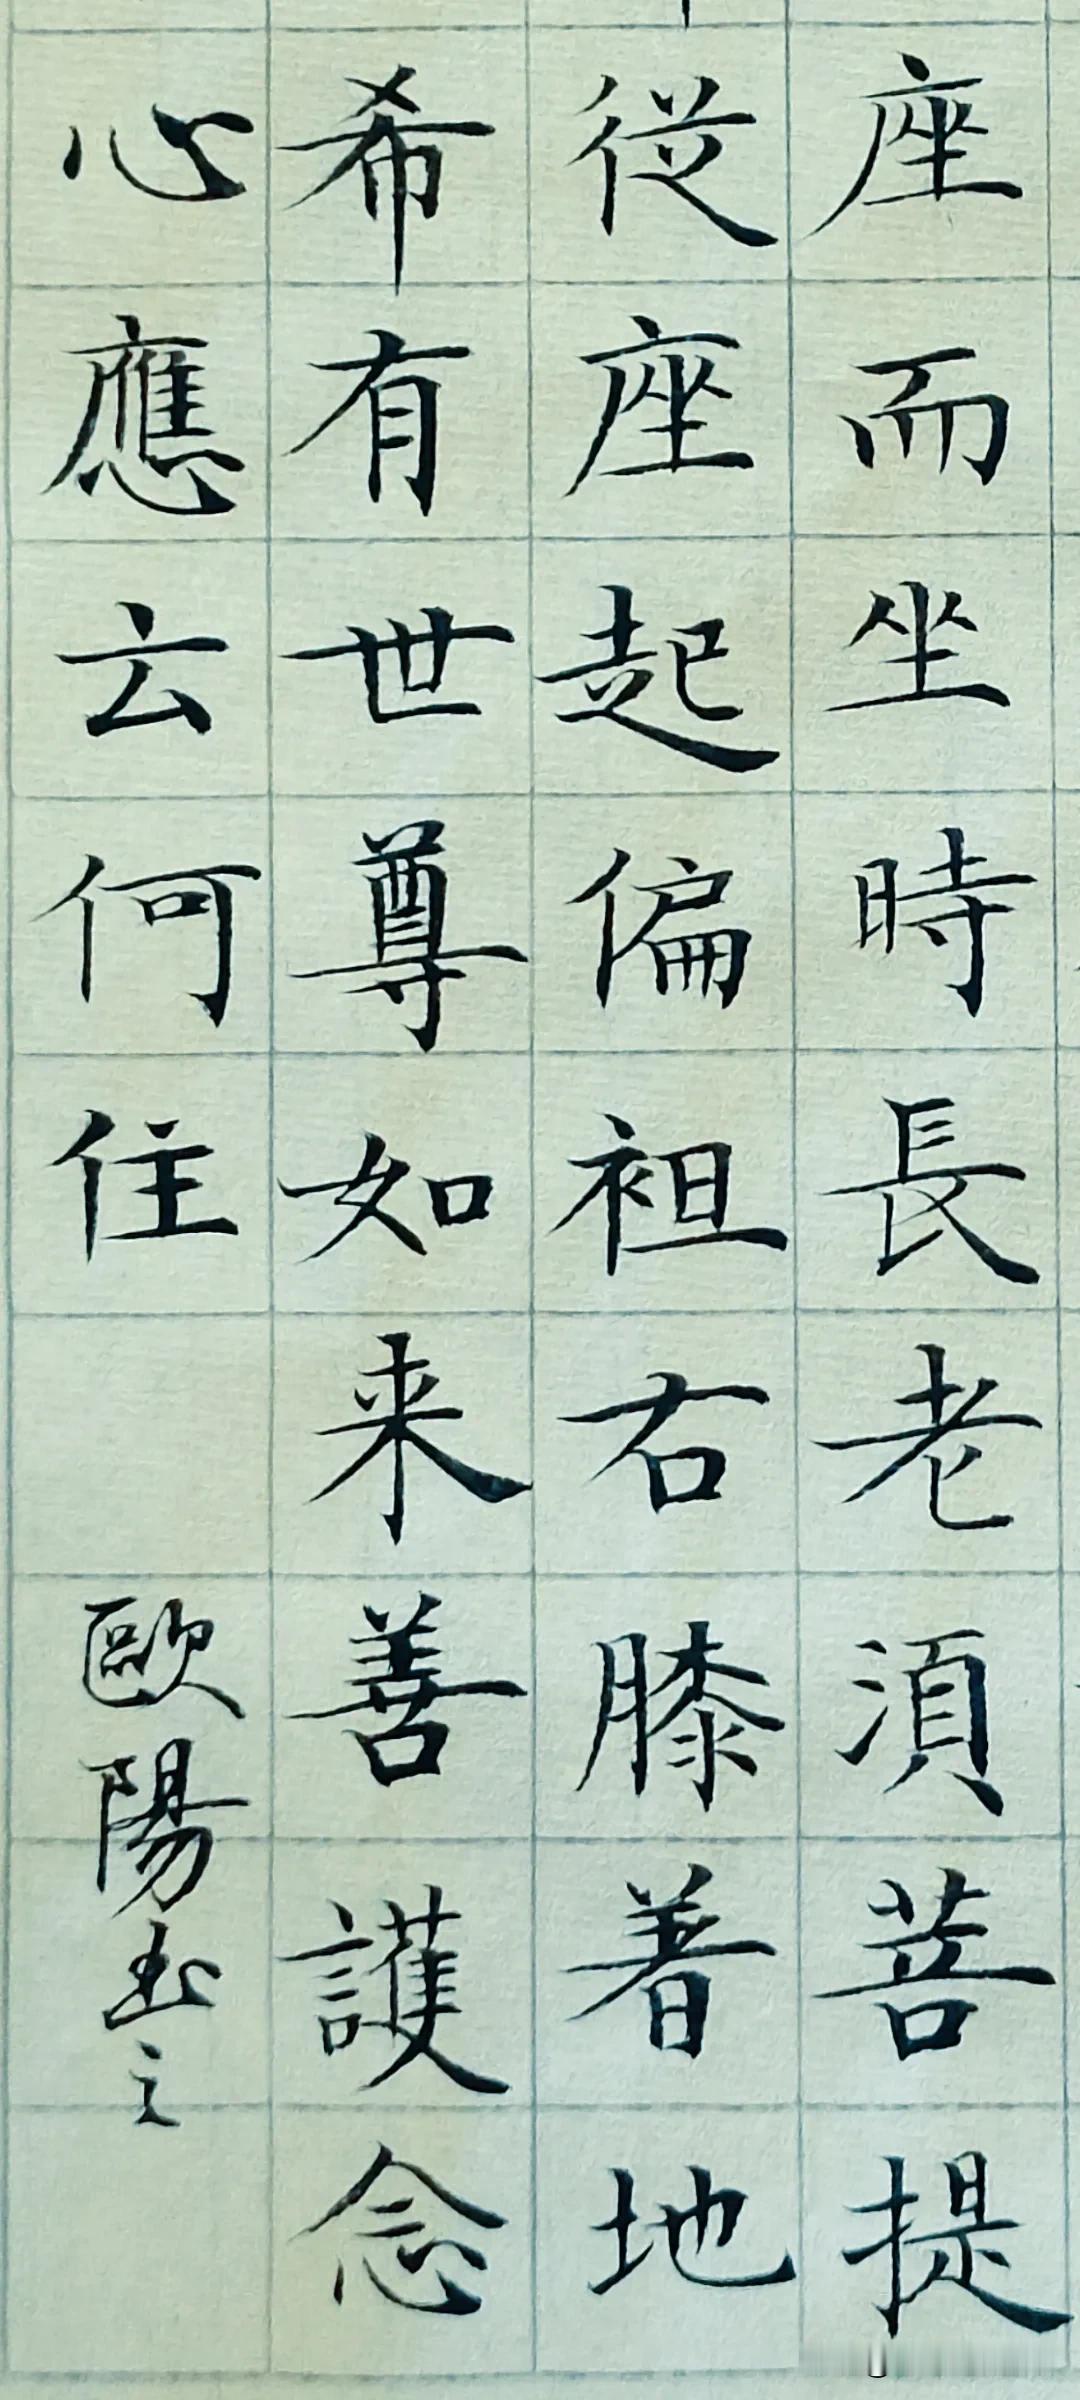 座而坐時長老須菩提
従座起偏袒右膝著地
希有世尊如来善護念
心應云何住
歐陽之